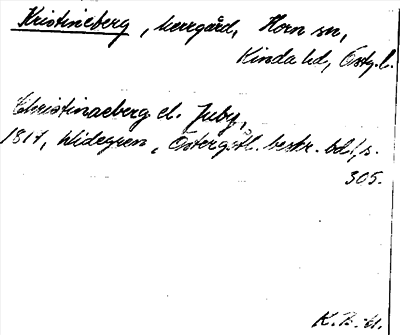 Kristineberg, herrgård, Horn sn,
Kinda hd, Östg. l.
Christinaeberg el. Juby,
1817, Widegren, Östergötl. beskr. bd 1, s.
305.